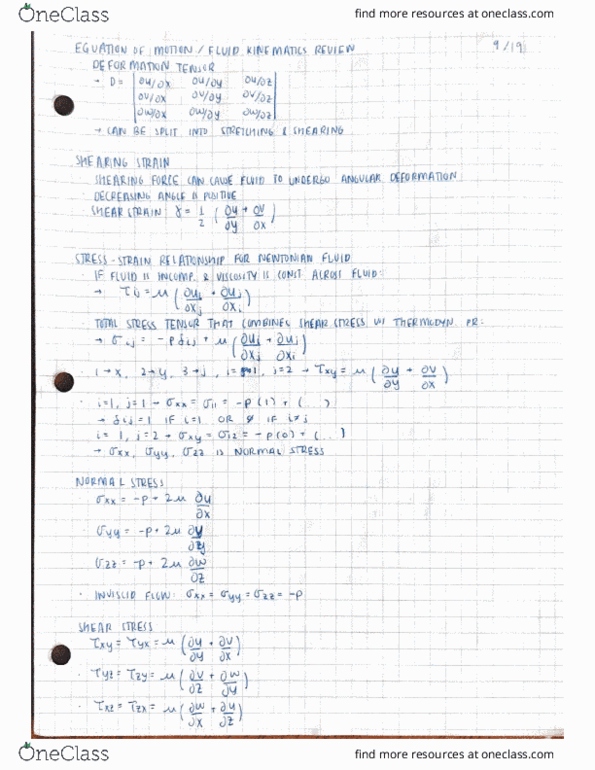 OneClass
find more resources at oneclass.com
EQUATION OF MOTION / FLUID KINEMATICS REVIEW 9/19
DEFORMATION TENSOR
→ D = | ∂u/∂x ∂u/∂y ∂u/∂z |
| ∂v/∂x ∂v/∂y ∂v/∂z |
| ∂w/∂x ∂w/∂y ∂w/∂z |
→ CAN BE SPLIT INTO STRETCHING & SHEARING
SHEARING STRAIN
SHEARING FORCE CAN CAUSE FLUID TO UNDERGO ANGULAR DEFORMATION
DECREASING ANGLE IS POSITIVE
· SHEAR STRAIN γ = 1/2 (∂u/∂y + ∂v/∂x)
STRESS-STRAIN RELATIONSHIP FOR NEWTONIAN FLUID
· IF FLUID IS INCOMP. & VISCOSITY IS CONST ACROSS FLUID:
→ τij = μ (∂ui/∂xj + ∂uj/∂xi)
· TOTAL STRESS TENSOR THAT COMBINES SHEAR STRESS W/ THERMODYN. PR:
→ σij = -pδij + μ (∂ui/∂xj + ∂uj/∂xi)
· 1→x, 2→y, 3→z, i=1, j=2 → τxy = μ (∂u/∂y + ∂v/∂x)
· i=1, j=1 → σxx = σ11 = -p(1) + (...)
→ δij = 1 IF i=j OR 0 IF i≠j
i=1, j=2 → σxy = σ12 = -p(0) + (...)
→ σxx, σyy, σzz IS NORMAL STRESS
NORMAL STRESS
σxx = -p + 2μ ∂u/∂x
σyy = -p + 2μ ∂v/∂y
σzz = -p + 2μ ∂w/∂z
· INVISCID FLOW: σxx = σyy = σzz = -p
SHEAR STRESS
τxy = τyx = μ (∂u/∂y + ∂v/∂x)
· τyz = τzy = μ (∂v/∂z + ∂w/∂y)
· τxz = τzx = μ (∂w/∂x + ∂u/∂z)
OneClass
find more resources at oneclass.com